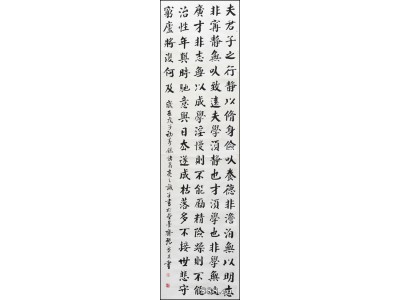 夫君子之行静以脩身儉以養德非澹泊無以明志
非寧静無以致遠夫學須静也才須學也非學無以
廣才非志無以成學淫慢則不能勵精險躁則不能
治性年與時馳意與日去遂成枯落多不接世悲守
窮廬將復何及